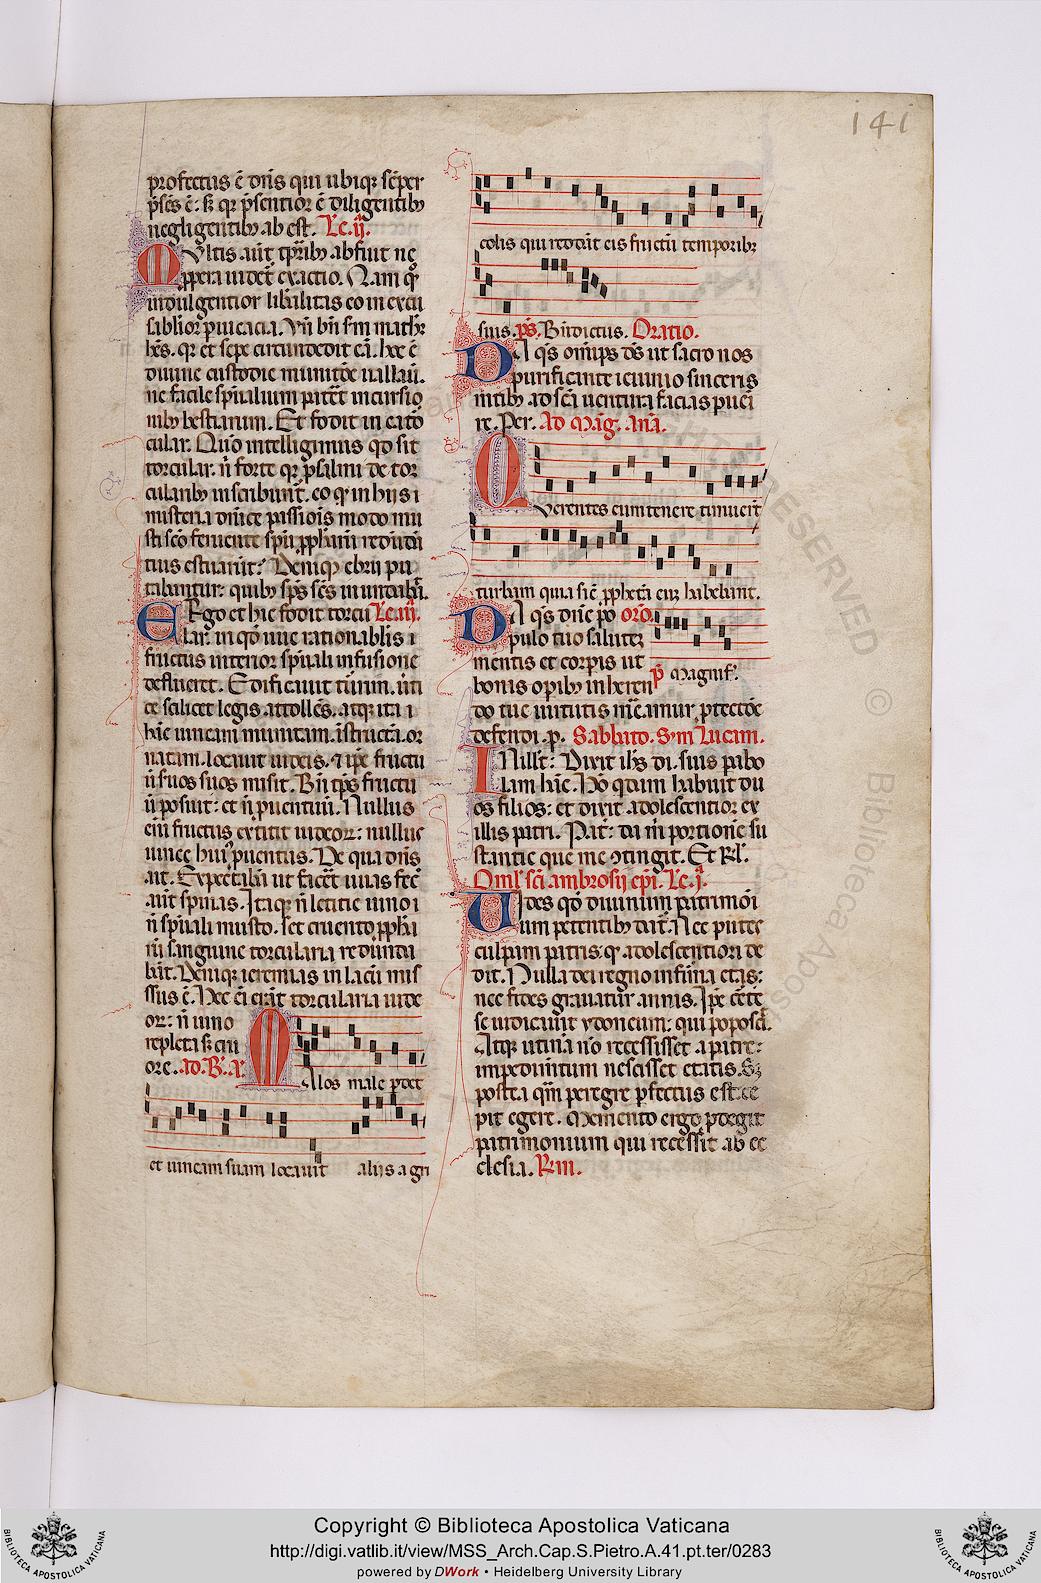 141
profectus ē dn̄s qui ubiq; sēper
p̄sēs ē. s; q̄r p̄sentior ē diligentib;
negligentib; ab est. Lc. ij.
Multis aut̄ tp̄rib; abfuit ne
p̄pera uideret̄ exactio. Nam q̄
indulgentior lib̄alitas eo inexcu
sabilior p̄uicacia. Vn̄ bn̄ s̄m math̄
h̄es. q̄r et sepe circūdedit eā. hec ē
diuine custodie munitōe uallauit.
ne facile sp̄ualium pateret̄ incursio
nib; bestiarum. Et fodit in ea tor
cular. Quō intelligimus qd̄ sit
torcular. n̄ forte q̄r psalmi de tor
cularib; inscribunt̄. eo q̄ in hijs
misteria dn̄ice passiōis modo mu
sti sc̄o feruente sp̄u pph̄arū redūdā
tius estuauit? Deniq; ebrij pu
tabantur: quib; sp̄s sc̄s inundabat.
Ergo et hic fodit torcu Lc. iij.
lar. in qd̄ uue rationabilis
fructus interior sp̄uali infusione
deflueret. Edificauit turrim. uerti
ce scilicet legis attollēs. atq; ita
hāc uineam munitam. istructā. or
natam. locauit iudeis. et tp̄e fructu
ū suos suos misit. Bn̄ tp̄s fructu
ū posuit: et n̄ puentuū. Nullus
em̄ fructus extitit iudeor: nullus
uinee hui; puentus. De qua dn̄s
ait. Expectabā ut faceret uuas fecit
aut̄ spinas. Itaq; n̄ letitie uino
n̄ sp̄uali musto. set cruento pph̄a
rū sanguine torcularia redunda
bāt. Deniq; ieremias in lacū mis
sus ē. Hec em̄ erāt torcularia iude
or: n̄ uino
repleta s; cru
ore. ad. B. a.
Malos male perdet
et uineam suam locauit aliis agri
colis qui reddāt eis fructū temporib;
suis. ps. Bn̄dictus. Oratio.
Da q̄s omp̄s ds̄ ut sacro nos
purificante ieiunio sinceris
mētib; ad sc̄a uentura facias pueni
re. Per. Ad Mag. an̄a.
Querentes eum tenere timuerūt
turbam quia sic̄ pph̄etā eū habebant.
Da q̄s dn̄e po or̄o.
pulo tuo salutem
mentis et corpis ut
bonis opib; inheren ps̄ magnif.
do tue uirtutis mēamur ptectōe
defendi. p. Sabbato. S'm Lucam.
In illo t: Dixit ih̄s di. suis parabo
lam hāc. Ho quidam habuit du
os filios: et dixit adolescentior ex
illis patri. Pat̄: da m̄ portionē su
stantie que me contingit. Et Rl.
Oml̄ sc̄i ambrosij epi. Lc. j.
Uides qd̄ diuinum patrimoni
um petentib; dat̄. Nec putes
culpam patris. q; adolescentiori de
dit. Nulla dei regno infirma etas:
nec fides grauatur annis. Ipe certe
se iudicauit ydoneum: qui poposcit.
Atq; utina nō recessisset a patre:
impedimentum nescisset etatis. S;
postea qm̄ peregre pfectus est: ce
pit egere. Memento ergo ptegit
patrimonium qui recessit ab ec
clesia. Rm.
Copyright © Biblioteca Apostolica Vaticana
http://digi.vatlib.it/view/MSS_Arch.Cap.S.Pietro.A.41.pt.ter/0283
powered by DWork • Heidelberg University Library